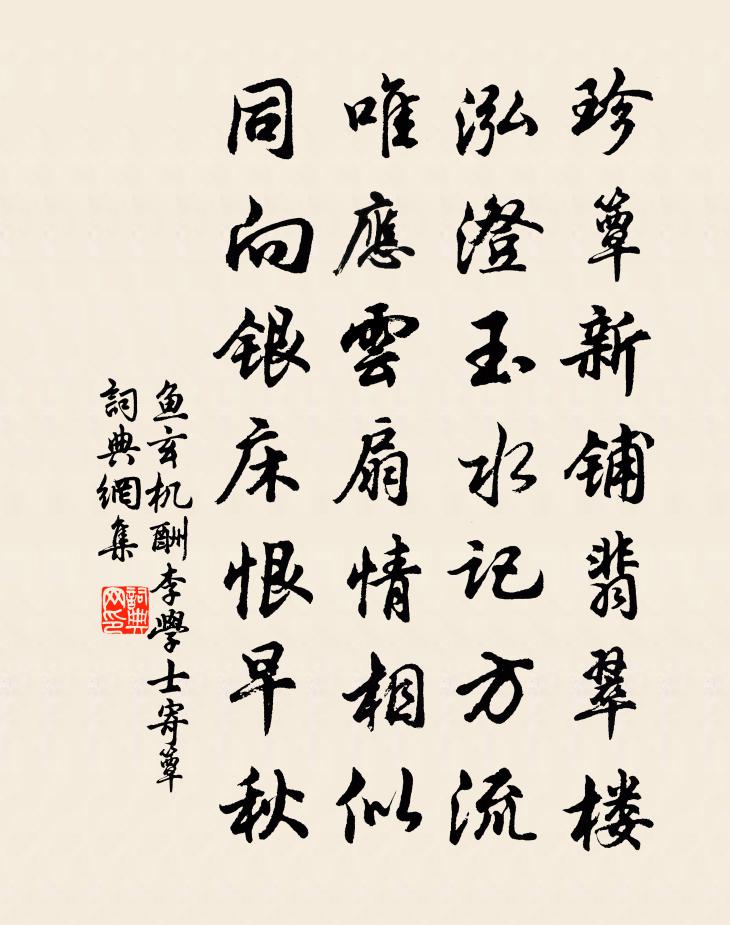 珍簟新铺翡翠楼
泓澄玉水记方流
唯應雲扇情相似
同向銀床恨早秋
鱼玄机酬李學士寄簟
詞典網集
詞典网印